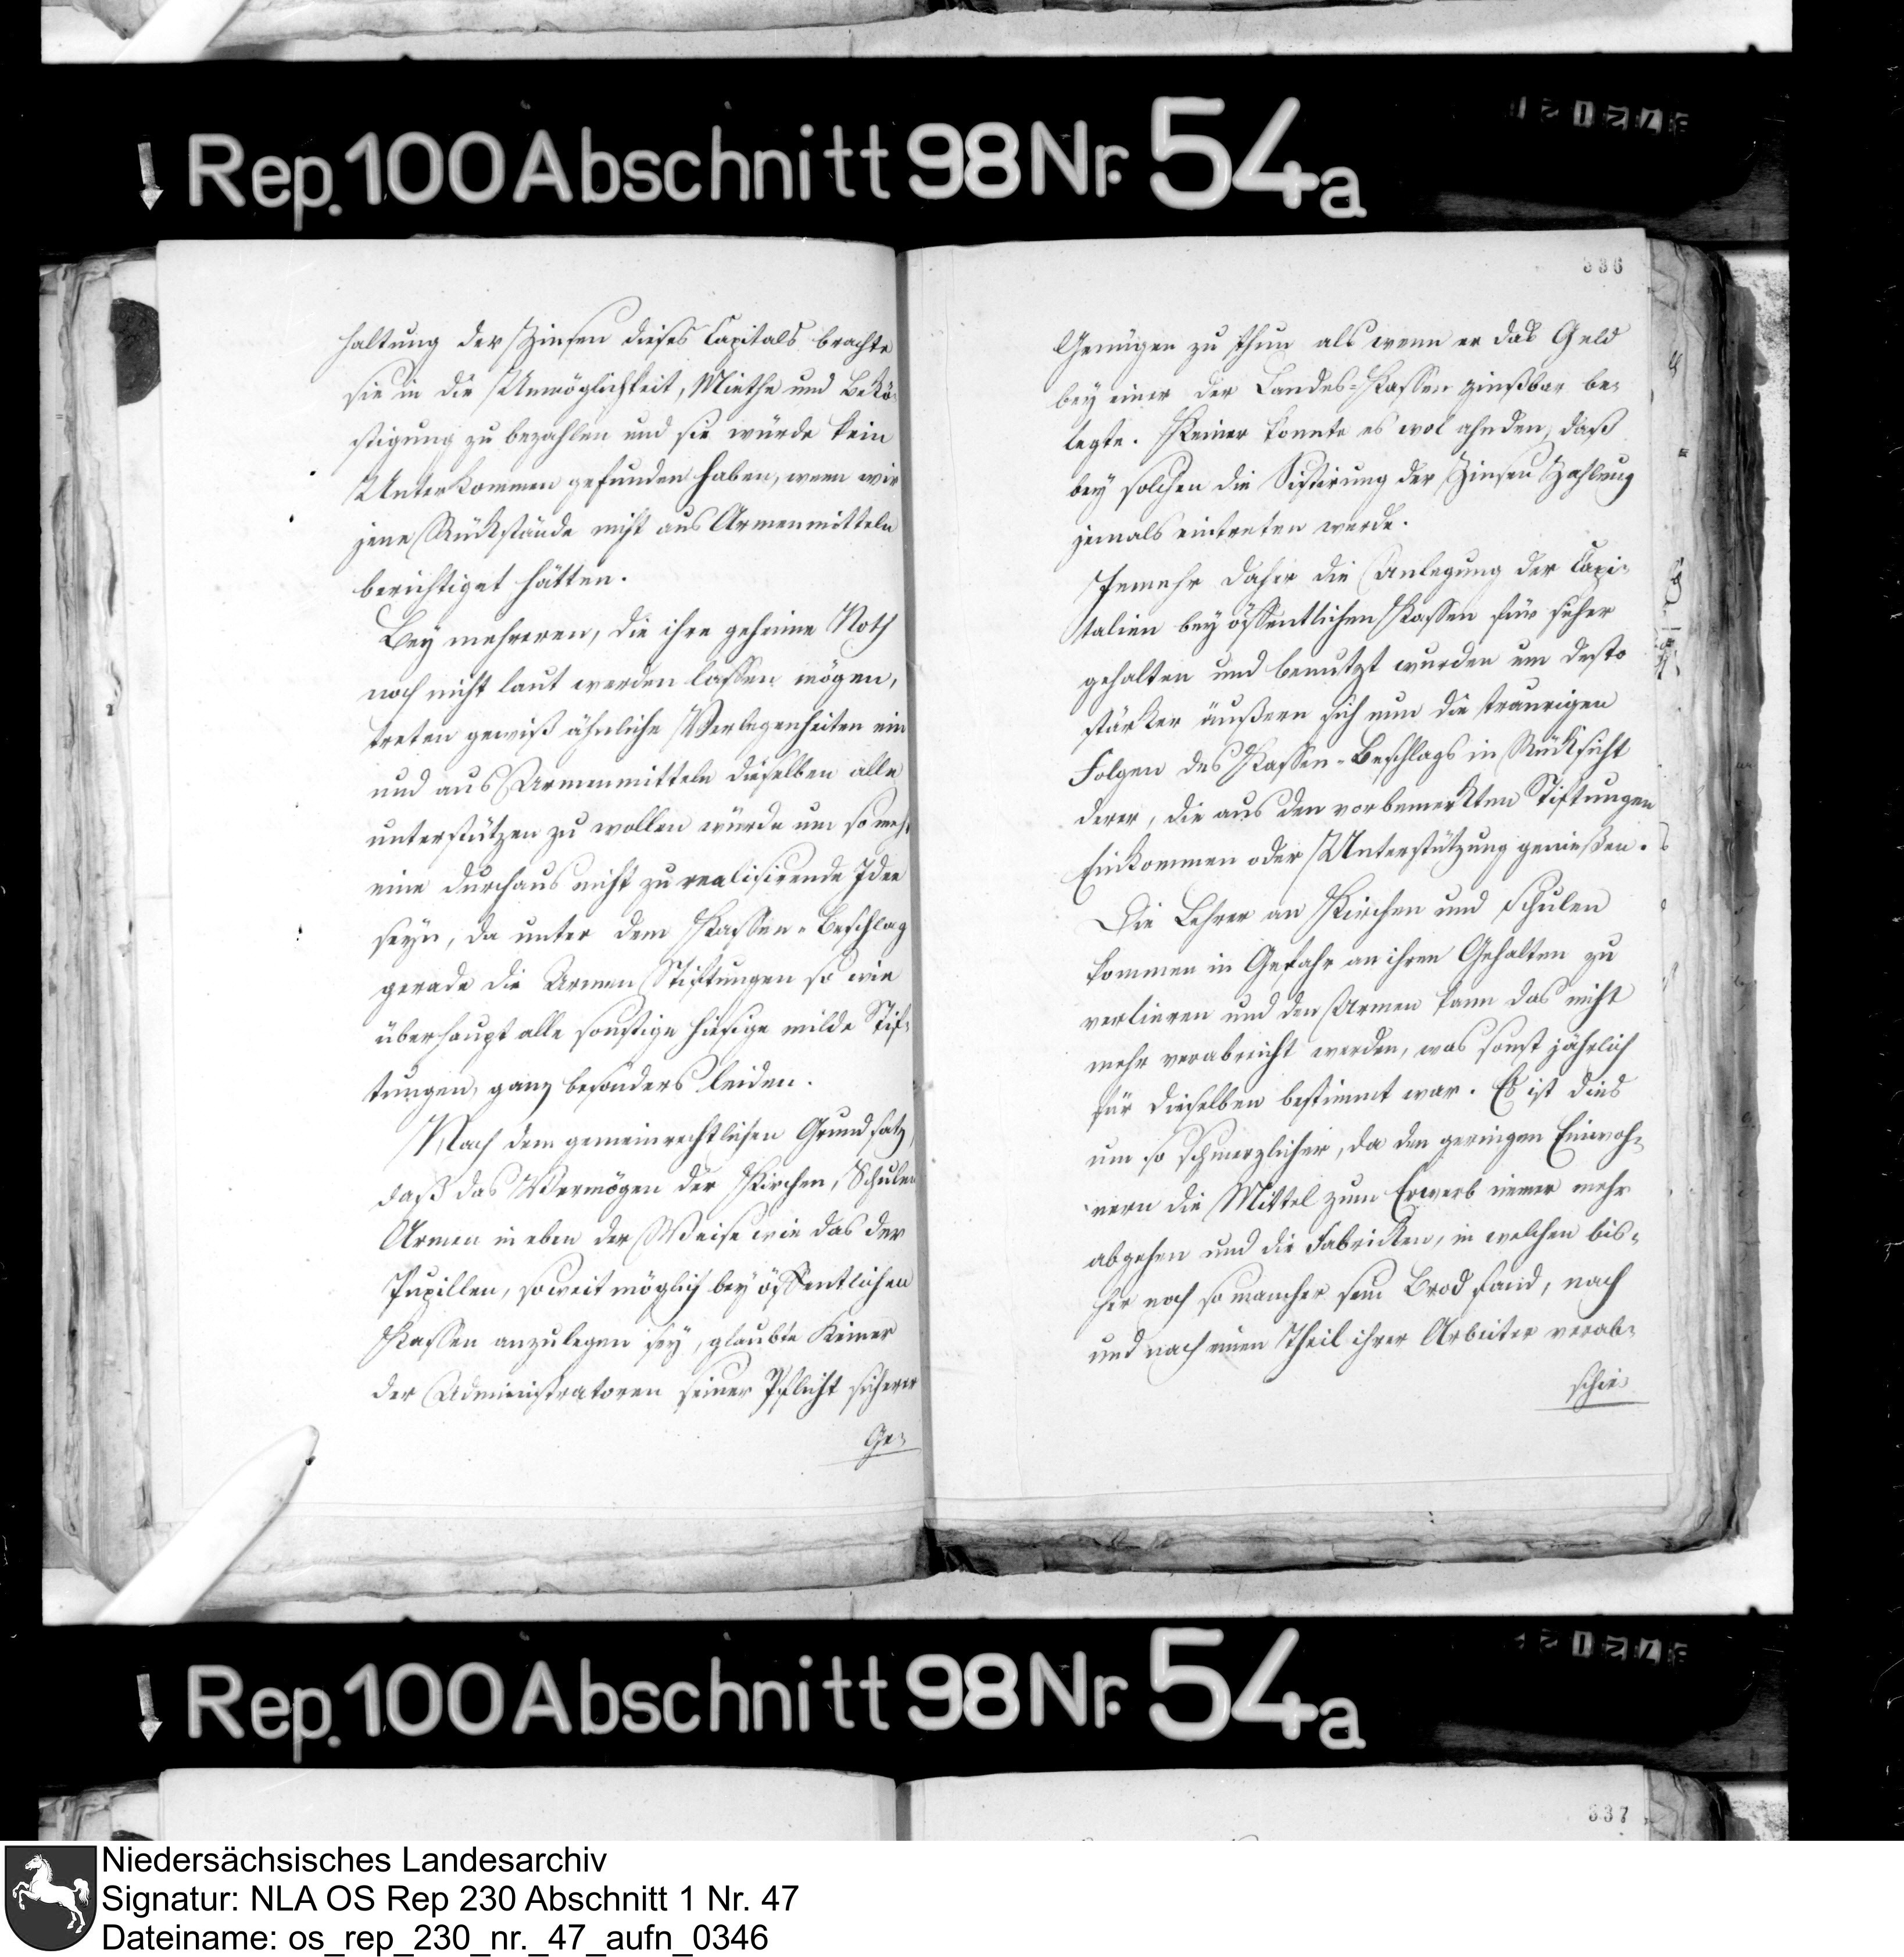 Rep. 100 Abschnitt 98 Nr. 54a
haltung der Zinsen dieses Capitals brachte
sie in die Unmöglichkeit, Miethe und Bekö-
stigung zu bezahlen und sie würde kein
Unterkommen gefunden haben, wenn wir
jene Rückstände nicht aus Armenmitteln
berichtiget hätten.
Bey mehreren, die ihre geheime Noth
noch nicht laut werden lassen mögen,
treten gewiß ähnliche Verlegenheiten ein
und aus Armenmitteln dieselben alle
unterstützen zu wollen würde um so mehr
eine durchaus nicht zu realisirende Idee
seyn, da unter dem Kassen-Beschlag
gerade die Armen Stiftungen so wie
überhaupt alle sonstige hiesige milde Stif-
tungen, ganz besonders leiden.
Nach dem gemeinrechtlichen Grundsatz,
daß das Vermögen der Kirchen, Schulen
Armen in eben der Weise wie das der
Pupillen, soweit möglich bey öffentlichen
Kassen anzulegen sey, glaubte Keiner
der Administratoren seiner Pflicht sicherer
Ge-
336
Genügen zu thun als wenn er das Geld
bey einer der Landes-Kassen zinßbar be-
legte. Keiner konnte es wol ahnden, daß
bey solchen die Sistirung der Zinsen Zahlung
jemals eintreten werde.
Jemehr daher die Anlegung der Capi-
talien bey öffentlichen Kassen für sicher
gehalten und benutzt wurden um desto
stärker äußern sich nun die traurigen
Folgen des Kassen-Beschlags in Rücksicht
derer, die aus den vorbemerkten Stiftungen
Einkommen oder Unterstützung genießen.
Die Lehrer an Kirchen und Schulen
kommen in Gefahr an ihren Gehalten zu
verlieren und den Armen kann das nicht
mehr verabreicht werden, was sonst jährlich
für dieselben bestimmt war. Es ist dies
um so schmerzlicher, da den geringen Einwoh-
nern die Mittel zum Erwerb immer mehr
abgehen und die Fabricken, in welchen bis-
her noch so mancher sein Brod fand, nach
und nach einen Theil ihrer Arbeiter verab-
schie-
Rep. 100 Abschnitt 98 Nr. 54a
337
Niedersächsisches Landesarchiv
Signatur: NLA OS Rep 230 Abschnitt 1 Nr. 47
Dateiname: os_rep_230_nr._47_aufn_0346